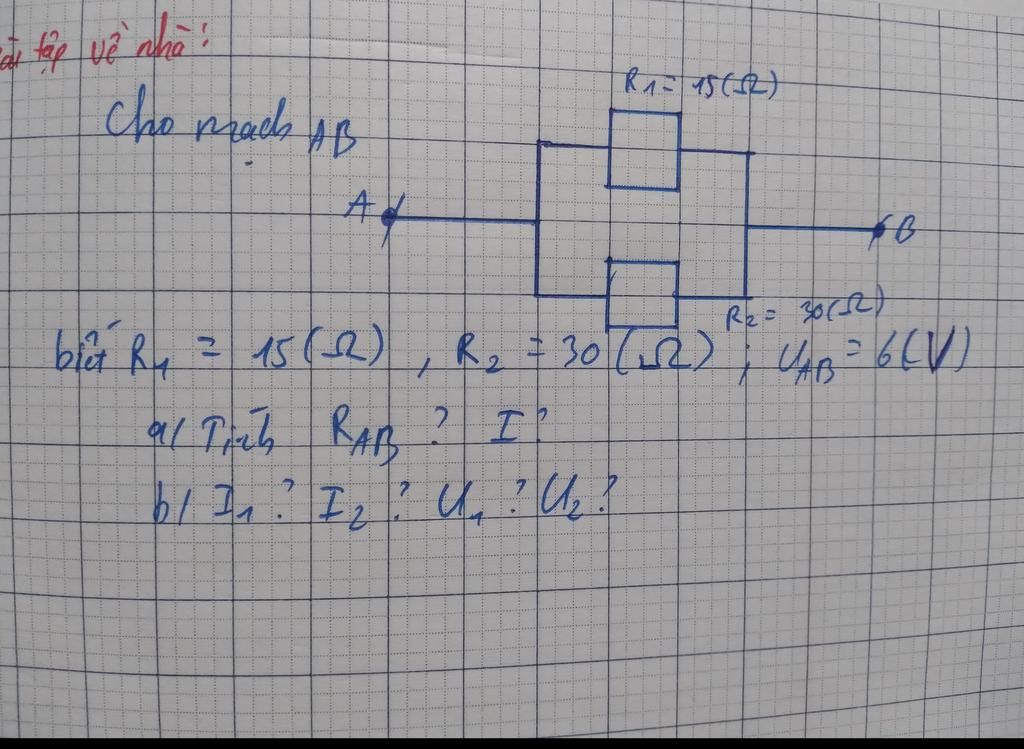 tập về nhà:
Cho mạch AB
R1 = 15(Ω)
A
B
R2 = 30(Ω)
biết R1 = 15(Ω), R2 = 30(Ω); UAB = 6(V)
a/ Tính RAB? I?
b/ I1? I2? U1? U2?